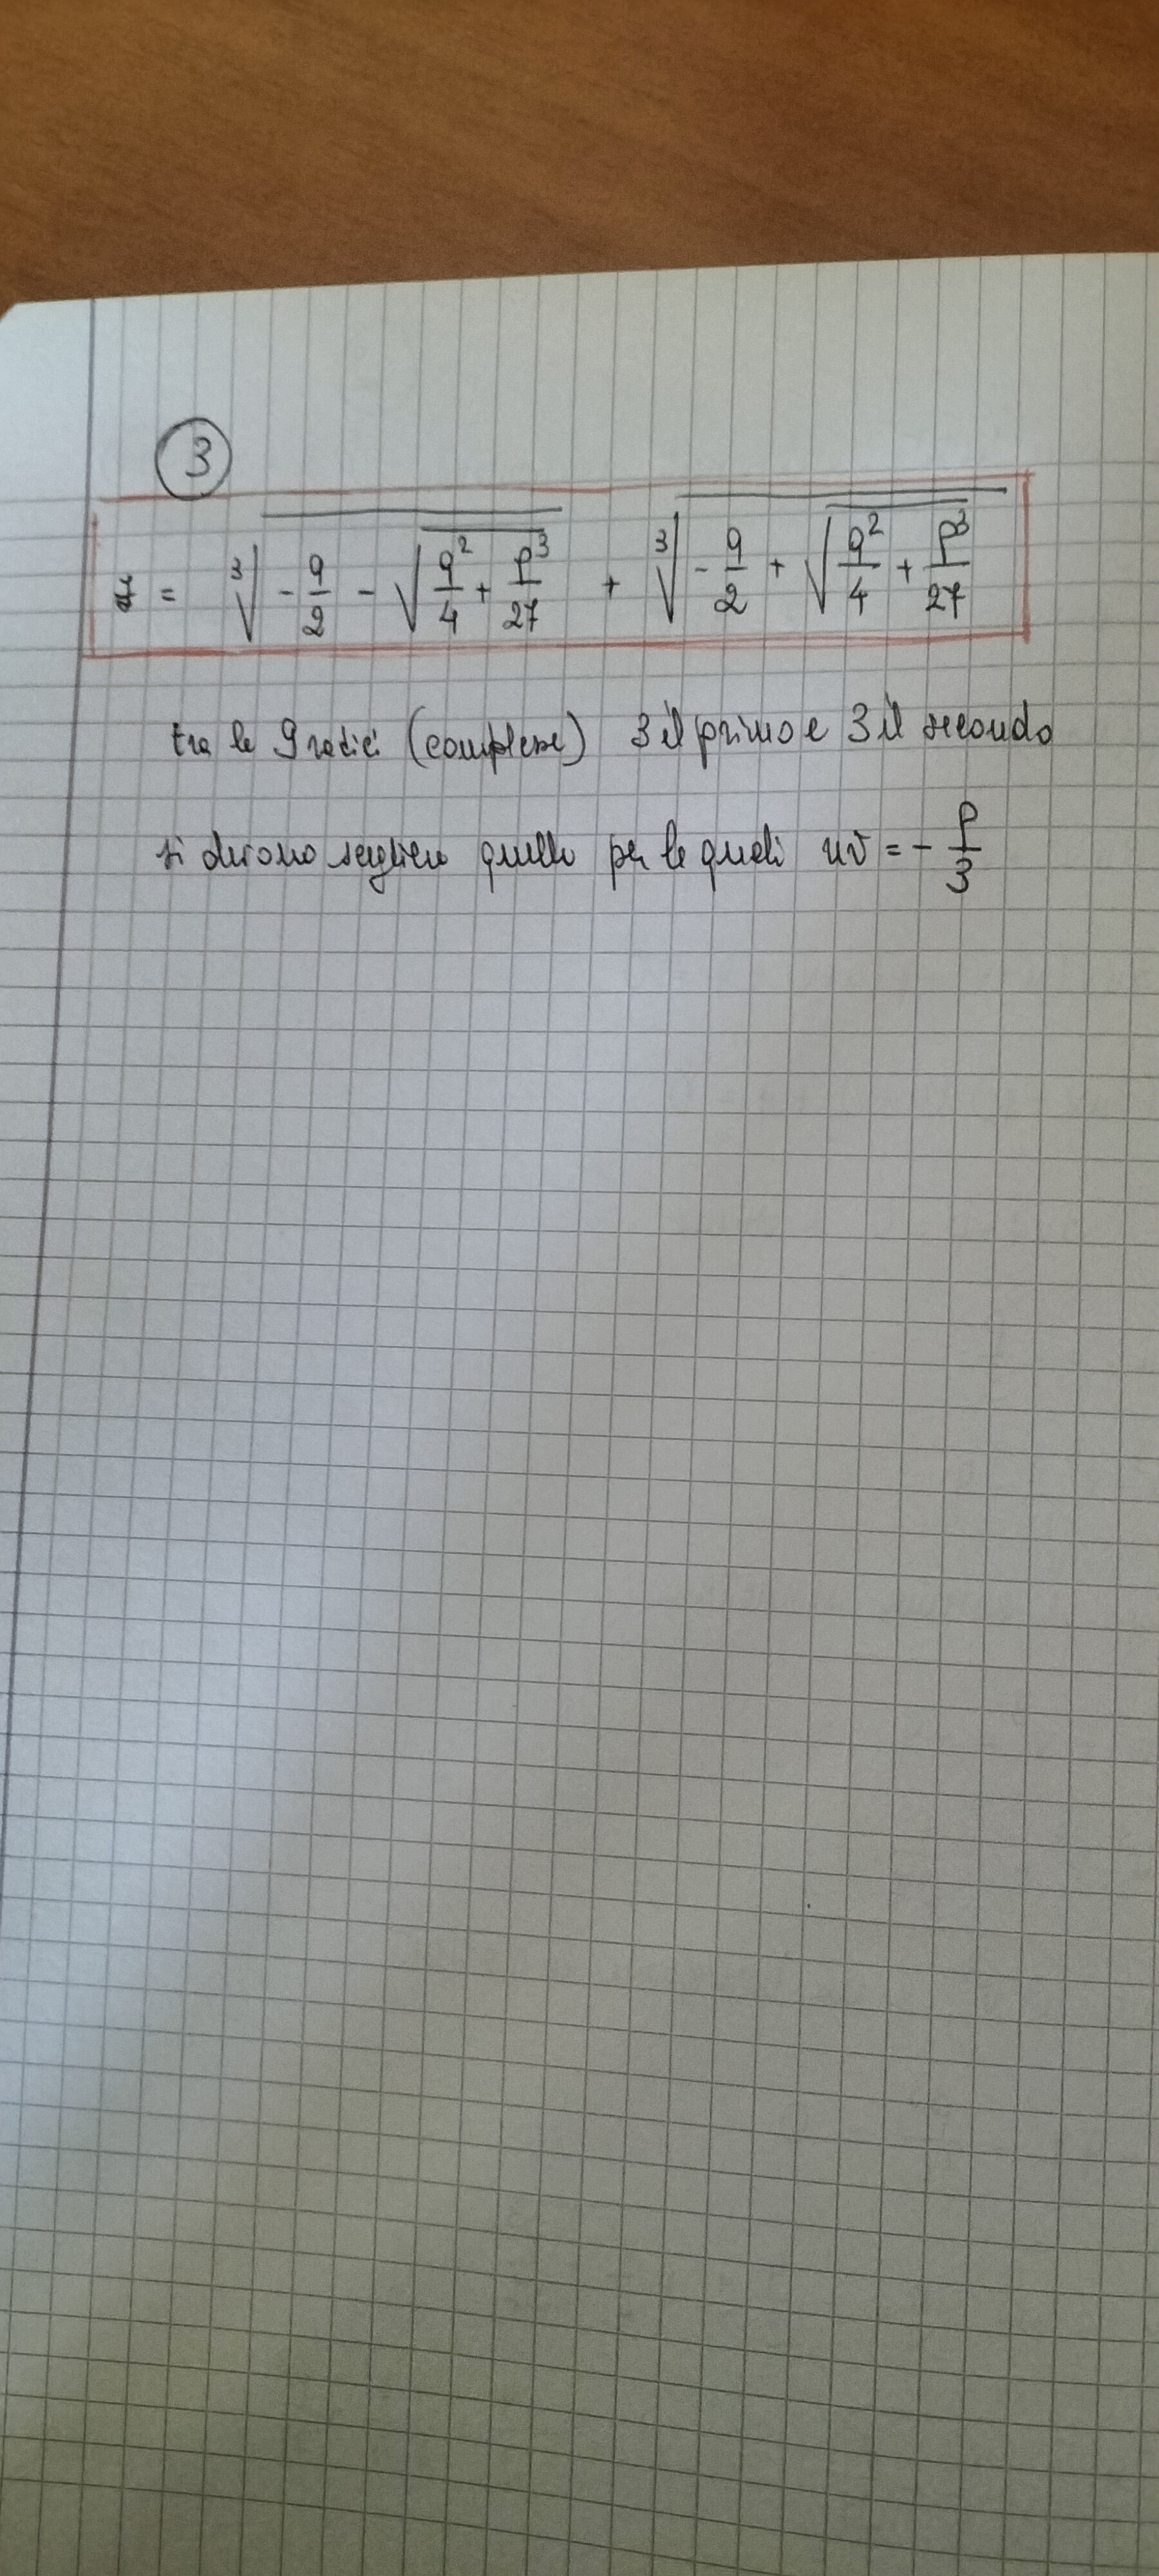 3
z = ∛(-q/2 - √(q²/4 + p³/27)) + ∛(-q/2 + √(q²/4 + p³/27))
tra le 9 radici (complesse) 3 il primo e 3 il secondo
si devono scegliere quelle per le quali uv = - p/3